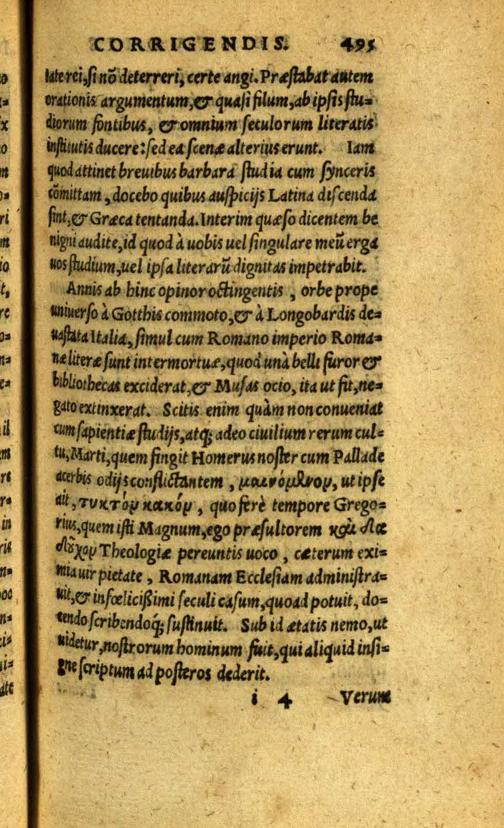 CORRIGENDIS. 495
late rei, si nõ deterreri, certe angi. Præstabat autem
orationis argumentum, & quasi filum, ab ipsis stu=
diorum fontibus, & omnium seculorum literatis
institutis ducere: sed ea scenæ alterius erunt. Iam
quod attinet breuibus barbara studia cum synceris
cõmittam, docebo quibus auspicijs Latina discenda
sint, & Græca tentanda. Interim quæso dicentem be
nigni audite, id quod à uobis uel singulare meũ erga
uos studium, uel ipsa literarũ dignitas impetrabit.
Annis ab hinc opinor octingentis, orbe prope
uniuerso à Gotthis commoto, & à Longobardis de=
uastata Italia, simul cum Romano imperio Roma=
næ literæ sunt intermortuæ, quod unà belli furor &
bibliothecas exciderat, & Musas ocio, ita ut fit, ne=
gato extinxerat. Scitis enim quàm non conueniat
cum sapientiæ studijs, atq; adeo ciuilium rerum cul=
tu, Marti, quem fingit Homerus noster cum Pallade
acerbis odijs conflictantem, μαινόμϑνον, ut ipse
ait, τυκτόν κακόν, quo ferè tempore Grego=
rius, quem isti Magnum, ego præsultorem καὶ δᾳ
δοῦχον Theologiæ pereuntis uoco, cæterum exi=
mia uir pietate, Romanam Ecclesiam administra=
uit, & infœlicißimi seculi casum, quoad potuit, do=
cendo scribendoq; sustinuit. Sub id ætatis nemo, ut
uidetur, nostrorum hominum fuit, qui aliquid insi=
gne scriptum ad posteros dederit.
i 4 Verum